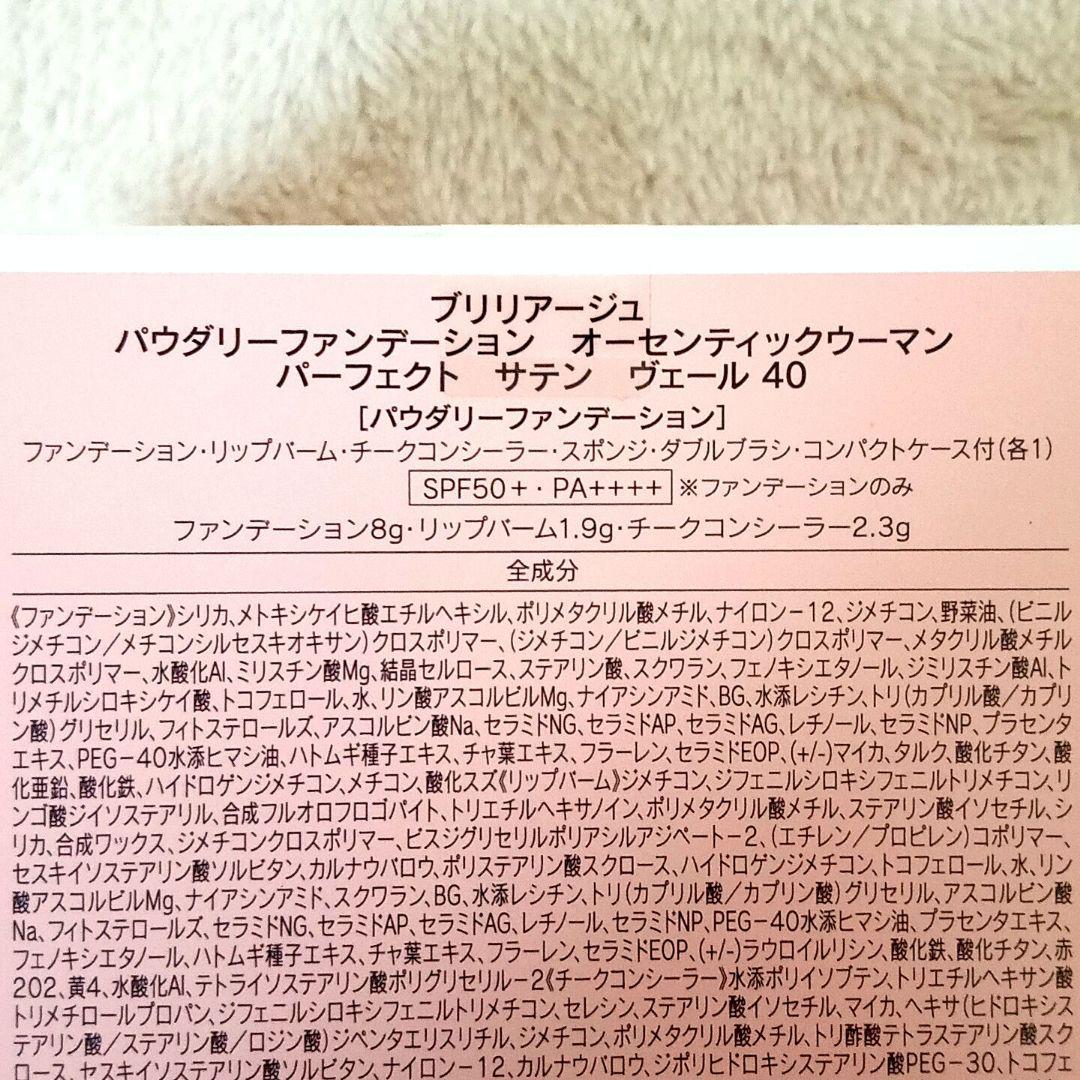 ブリリアージュ
パウダリーファンデーション オーセンティックウーマン
パーフェクト サテン ヴェール 40
[パウダリーファンデーション]
ファンデーション・リップバーム・チークコンシーラー・スポンジ・ダブルブラシ・コンパクトケース付(各1)
SPF50+・PA++++ ※ファンデーションのみ
ファンデーション8g・リップバーム1.9g・チークコンシーラー2.3g
全成分
《ファンデーション》シリカ、メトキシケイヒ酸エチルヘキシル、ポリメタクリル酸メチル、ナイロン－12、ジメチコン、野菜油、(ビニル
ジメチコン／メチコンシルセスキオキサン)クロスポリマー、(ジメチコン／ビニルジメチコン)クロスポリマー、メタクリル酸メチル
クロスポリマー、水酸化Al、ミリスチン酸Mg、結晶セルロース、ステアリン酸、スクワラン、フェノキシエタノール、ジミリスチン酸Al、ト
リメチルシロキシケイ酸、トコフェロール、水、リン酸アスコルビルMg、ナイアシンアミド、BG、水添レシチン、トリ(カプリル酸／カプリ
ン酸)グリセリル、フィトステロールズ、アスコルビン酸Na、セラミドNG、セラミドAP、セラミドAG、レチノール、セラミドNP、プラセンタ
エキス、PEG－40水添ヒマシ油、ハトムギ種子エキス、チャ葉エキス、フラーレン、セラミドEOP、(+/-)マイカ、タルク、酸化チタン、酸
化亜鉛、酸化鉄、ハイドロゲンジメチコン、メチコン、酸化スズ《リップバーム》ジメチコン、ジフェニルシロキシフェニルトリメチコン、リ
ンゴ酸ジイソステアリル、合成フルオロフロゴパイト、トリエチルヘキサノイン、ポリメタクリル酸メチル、ステアリン酸イソセチル、シ
リカ、合成ワックス、ジメチコンクロスポリマー、ビスジグリセリルポリアシルアジペート－2、(エチレン／プロピレン)コポリマー、
セスキイソステアリン酸ソルビタン、カルナウバロウ、ポリステアリン酸スクロース、ハイドロゲンジメチコン、トコフェロール、水、リン
酸アスコルビルMg、ナイアシンアミド、スクワラン、BG、水添レシチン、トリ(カプリル酸／カプリン酸)グリセリル、アスコルビン酸
Na、フィトステロールズ、セラミドNG、セラミドAP、セラミドAG、レチノール、セラミドNP、PEG－40水添ヒマシ油、プラセンタエキス、
フェノキシエタノール、ハトムギ種子エキス、チャ葉エキス、フラーレン、セラミドEOP、(+/-)ラウロイルリシン、酸化鉄、酸化チタン、赤
202、黄4、水酸化Al、テトライソステアリン酸ポリグリセリル－2《チークコンシーラー》水添ポリイソブテン、トリエチルヘキサン酸
トリメチロールプロパン、ジフェニルシロキシフェニルトリメチコン、セレシン、ステアリン酸イソセチル、マイカ、ヘキサ(ヒドロキシス
テアリン酸／ステアリン酸／ロジン酸)ジペンタエリスリチル、ジメチコン、ポリメタクリル酸メチル、トリ酢酸テトラステアリン酸スク
ロース、セスキイソステアリン酸ソルビタン、ナイロン－12、カルナウバロウ、ジポリヒドロキシステアリン酸PEG－30、トコフェ